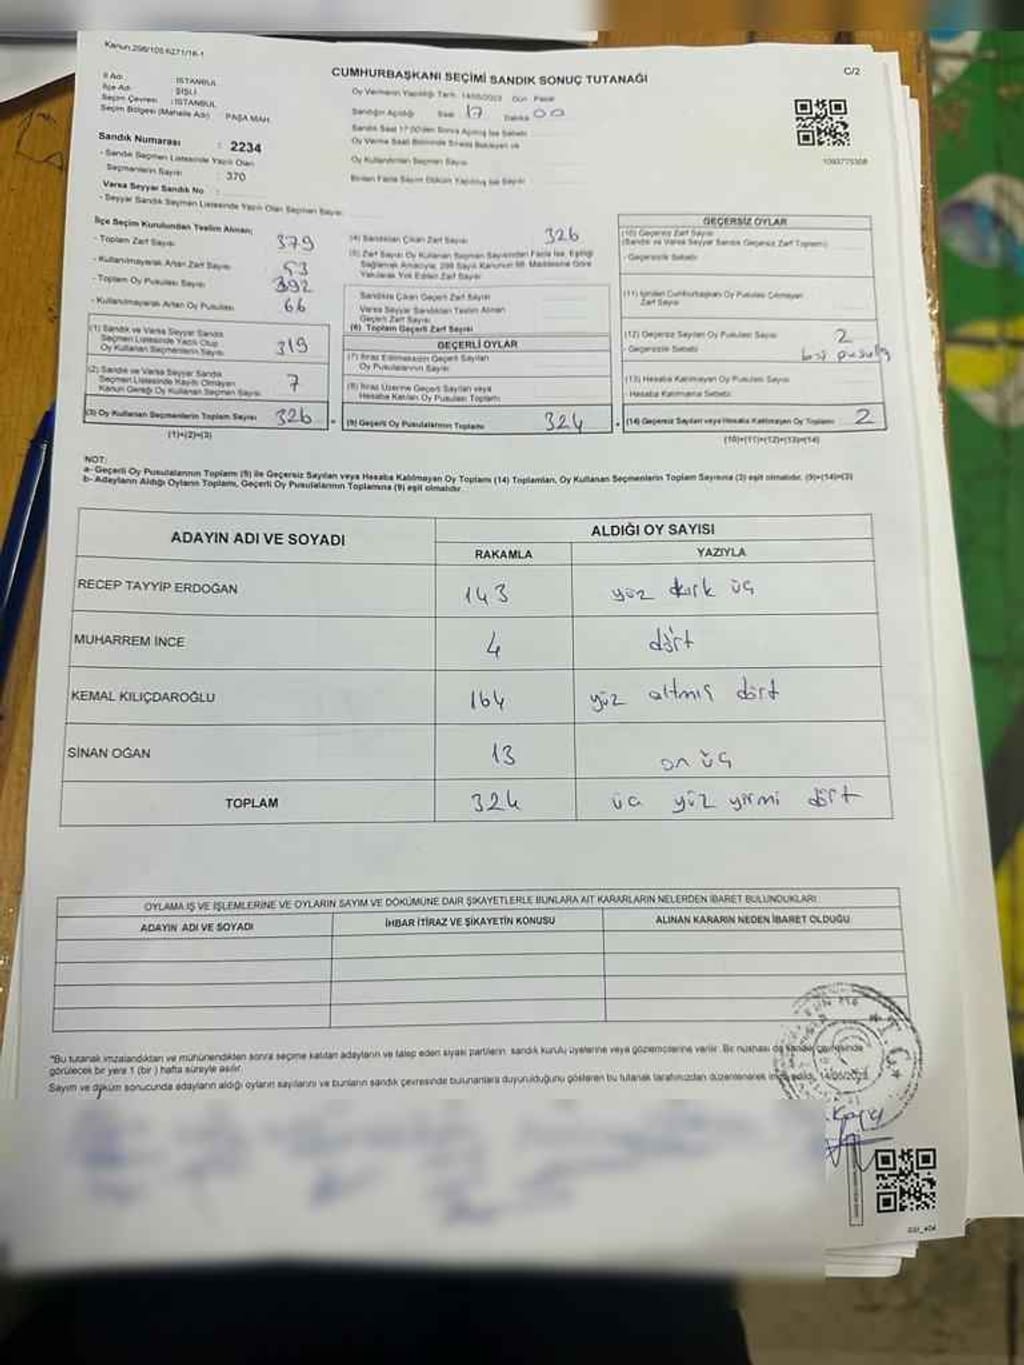 Kanun:298/105 6271/16-1
C/2
CUMHURBAŞKANI SEÇİMİ SANDIK SONUÇ TUTANAĞI
İl Adı : İSTANBUL
İlçe Adı : ŞİŞLİ
Seçim Çevresi : İSTANBUL
Seçim Bölgesi (Mahalle Adı) PAŞA MAH.
Sandık Numarası : 2234
- Sandık Seçmen Listesinde Yazılı Olan
Seçmenlerin Sayısı : 370
Varsa Seyyar Sandık No :
- Seyyar Sandık Seçmen Listesinde Yazılı Olan Seçmen Sayısı
Oy Vermenin Yapıldığı Tarih: 14/05/2023 Gün Pazar
Sandığın Açıldığı Saat 17 Dakika 00
Sandık Saat 17:00'den Sonra Açılmış İse Sebebi
Oy Verme Saati Bitiminde Sırada Bekleyen ve
Oy Kullandırılan Seçmen Sayısı
Birden Fazla Sayım Döküm Yapılmış İse Sayısı
İlçe Seçim Kurulundan Teslim Alınan;
- Toplam Zarf Sayısı 379
- Kullanılmayarak Artan Zarf Sayısı 53
- Toplam Oy Pusulası Sayısı 392
- Kullanılmayarak Artan Oy Pusulası 66
(1) Sandık ve Varsa Seyyar Sandık
Seçmen Listesinde Yazılı Olup
Oy Kullanan Seçmenlerin Sayısı 319
(2) Sandık ve Varsa Seyyar Sandık
Seçmen Listesinde Kayıtlı Olmayan
Kanun Gereği Oy Kullanan Seçmen Sayısı 7
(3) Oy Kullanan Seçmenlerin Toplam Sayısı 326
(1)+(2)=(3)
(4) Sandıktan Çıkan Zarf Sayısı 326
(5) Zarf Sayısı Oy Kullanan Seçmen Sayısından Fazla İse, Eşitliği
Sağlamak Amacıyla, 298 Sayılı Kanunun 98. Maddesine Göre
Yakılarak Yok Edilen Zarf Sayısı
Sandıkta Çıkan Geçerli Zarf Sayısı
Varsa Seyyar Sandıktan Teslim Alınan
Geçerli Zarf Sayısı
(6) Toplam Geçerli Zarf Sayısı
GEÇERLİ OYLAR
(7) İtiraz Edilmeksizin Geçerli Sayılan
Oy Pusulalarının Sayısı
(8) İtiraz Üzerine Geçerli Sayılan veya
Hesaba Katılan Oy Pusulası Toplamı
(9) Geçerli Oy Pusulalarının Toplamı 324
GEÇERSİZ OYLAR
(10) Geçersiz Zarf Sayısı
(Sandık ve Varsa Seyyar Sandık Geçersiz Zarf Toplamı)
- Geçersizlik Sebebi
(11) İçinden Cumhurbaşkanı Oy Pusulası Çıkmayan
Zarf Sayısı
(12) Geçersiz Sayılan Oy Pusulası Sayısı 2
- Geçersizlik Sebebi boş pusula
(13) Hesaba Katılmayan Oy Pusulası Sayısı
- Hesaba Katılmama Sebebi
(14) Geçersiz Sayılan veya Hesaba Katılmayan Oy Toplamı 2
(10)+(11)+(12)+(13)=(14)
NOT:
a- Geçerli Oy Pusulalarının Toplamı (9) ile Geçersiz Sayılan veya Hesaba Katılmayan Oy Toplamı (14) Toplamları, Oy Kullanan Seçmenlerin Toplam Sayısına (3) eşit olmalıdır. (9)+(14)=(3)
b- Adayların Aldığı Oyların Toplamı, Geçerli Oy Pusulalarının Toplamına (9) eşit olmalıdır.
ADAYIN ADI VE SOYADI
ALDIĞI OY SAYISI
RAKAMLA YAZIYLA
RECEP TAYYİP ERDOĞAN 143 yüz kırk üç
MUHARREM İNCE 4 dört
KEMAL KILIÇDAROĞLU 164 yüz altmış dört
SİNAN OĞAN 13 on üç
TOPLAM 324 üç yüz yirmi dört
OYLAMA İŞ VE İŞLEMLERİNE VE OYLARIN SAYIM VE DÖKÜMÜNE DAİR ŞİKAYETLERLE BUNLARA AİT KARARLARIN NELERDEN İBARET BULUNDUKLARI
ADAYIN ADI VE SOYADI İHBAR İTİRAZ VE ŞİKAYETİN KONUSU ALINAN KARARIN NEDEN İBARET OLDUĞU
*Bu tutanak imzalandıktan ve mühürlendikten sonra seçime katılan adayların ve talep eden siyasi partilerin sandık kurulu üyelerine veya gözlemcilerine verilir. Bir nüshası da sandık çevresinde
görülecek bir yere 1 (bir) hafta süreyle asılır.
Sayım ve döküm sonucunda adayların aldığı oyların sayılarını ve bunların sandık çevresinde bulunanlara duyurulduğunu gösteren bu tutanak tarafımızdan düzenlenerek imza edildi. 14/05/2023
T.C.